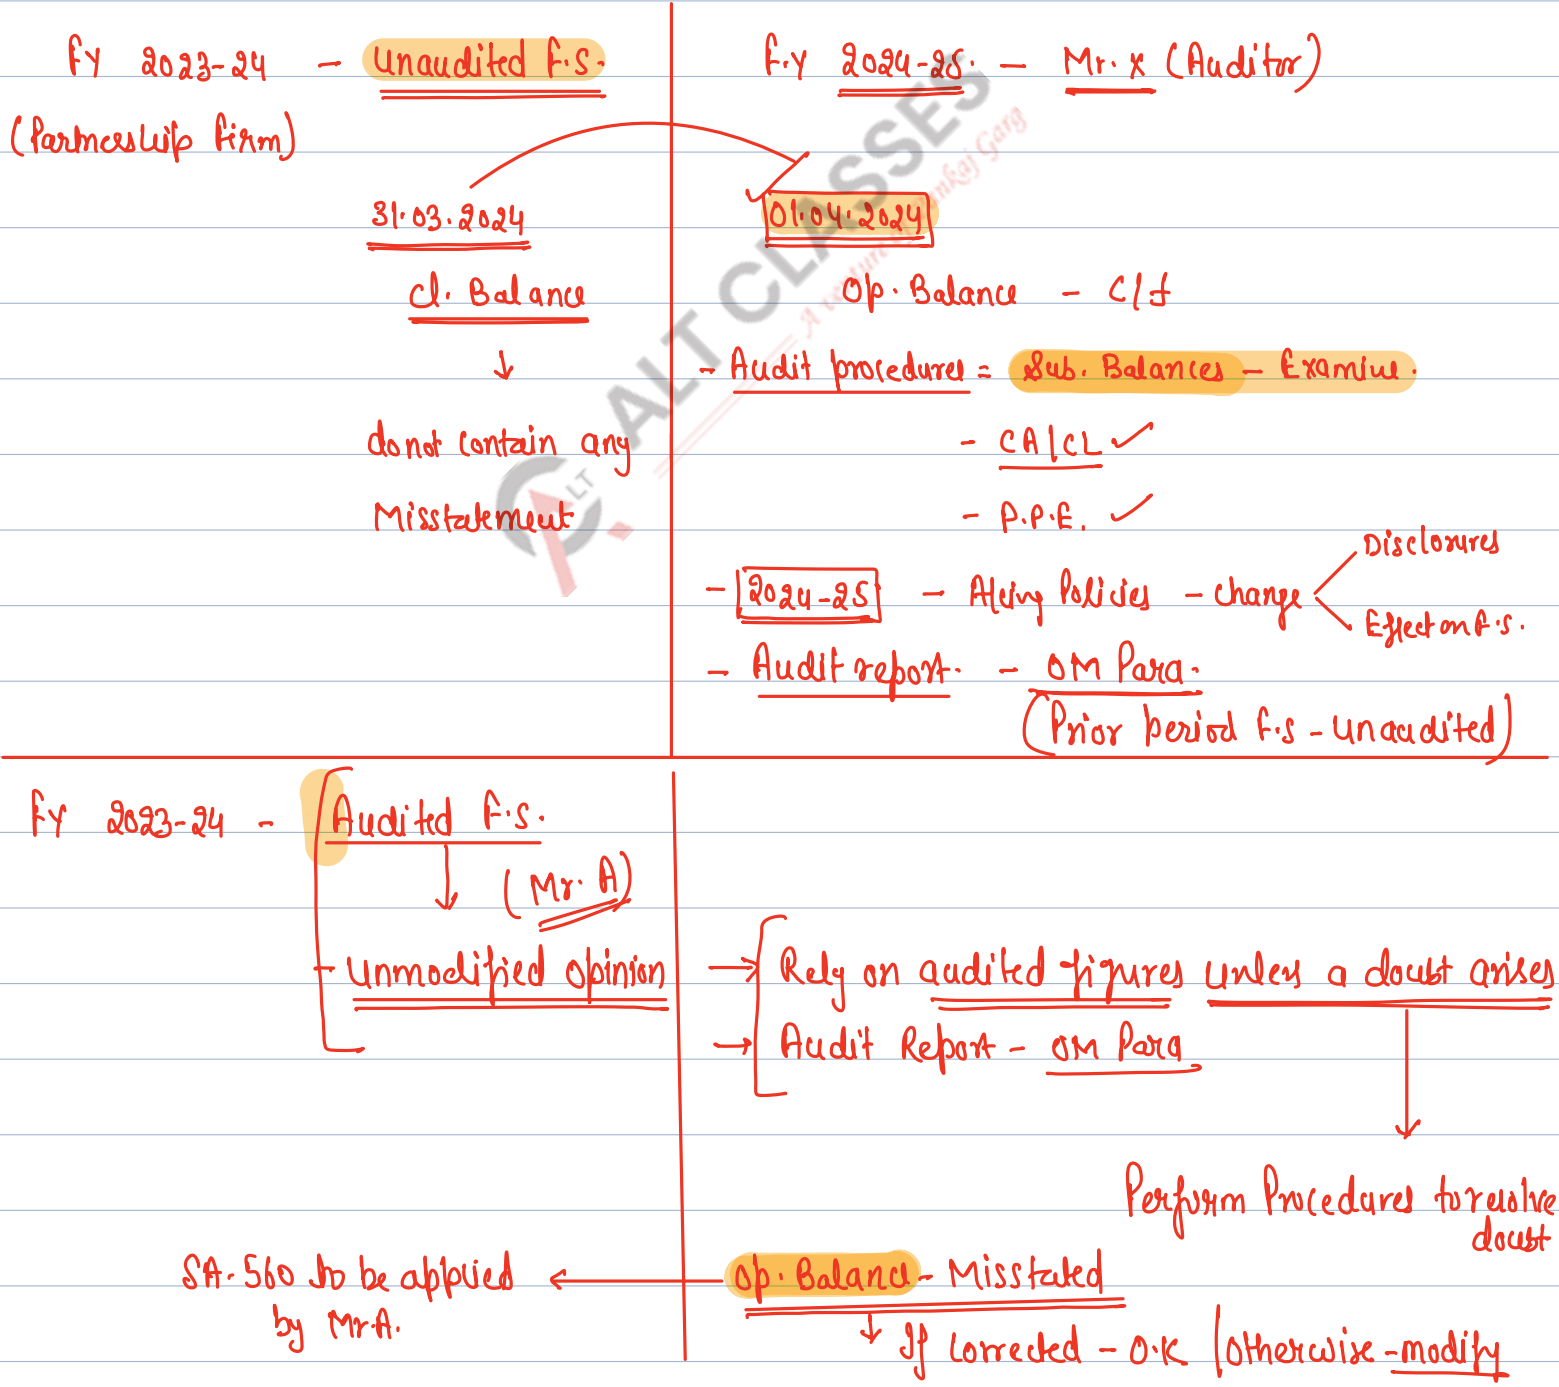 FY 2023-24 - Unaudited F.S.
(Partnership Firm)
31.03.2024
Cl. Balance
↓
do not contain any
Misstatement
F.Y 2024-25. - Mr. X (Auditor)
01.04.2024
Op. Balance - C/f
- Audit procedures = Sub. Balances - Examine.
- CA/CL ✓
- P.P.E. ✓
- 2024-25 - A/cing Policies - change
Disclosures
Effect on F.S.
- Audit report. - OM Para.
(Prior period F.S - Unaudited)
FY 2023-24 - Audited F.S.
(Mr. A)
- Unmodified opinion
→ Rely on audited figures unless a doubt arises
→ Audit Report - OM Para
Perform Procedures to resolve
doubt
Op. Balance - Misstated
SA.560 to be applied
by Mr.A.
If corrected - O.K (Otherwise - modify
ALT CLASSES
A venture of Pankaj Garg
LT